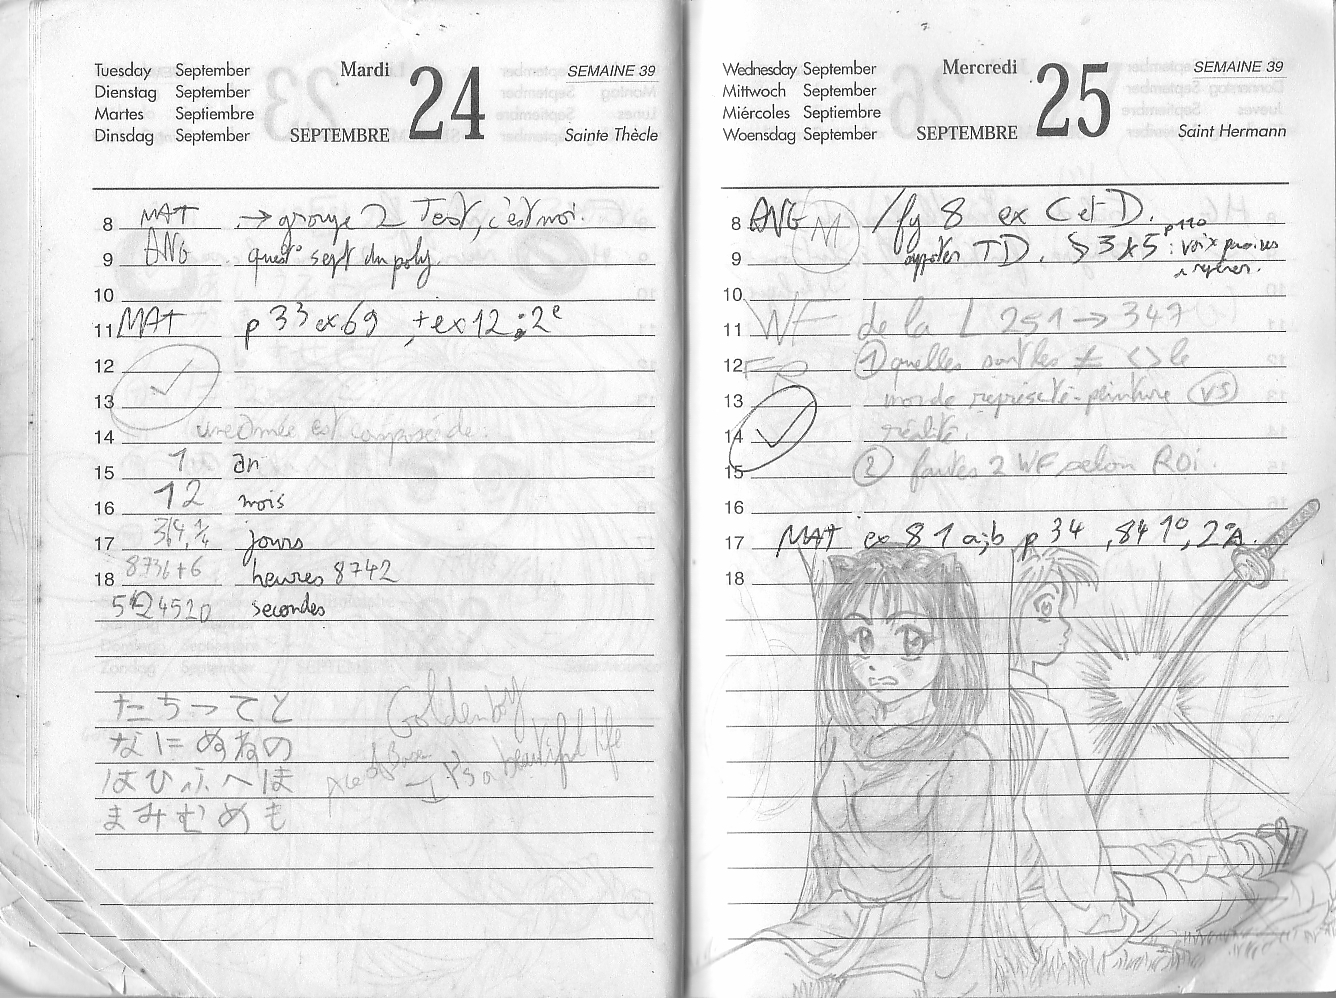 Tuesday September
Dienstag September
Martes Septiembre
Dinsdag September
Mardi
24
SEPTEMBRE
SEMAINE 39
Sainte Thècle
8 MAT → groupe 2 Test, c'est moi.
9 ANG quest° sept du poly.
10
11 MAT p 33 ex 69, + ex 12 ; 2e
12
13
14 une année est composée de :
15 1 an
16 12 mois
17 jours
18 8736+6 heures 8742
secondes
たちつてと
なにぬねの
はひふへほ
まみむめも
Goldenboy
It's a beautiful life
Wednesday September
Mittwoch September
Miércoles Septiembre
Woensdag September
Mercredi
25
SEPTEMBRE
SEMAINE 39
Saint Hermann
8 ANG M 8 ex C et D.
9 TD. § 3 p 110
: voix
10
11 WF de la L 251 → 347
12 ① quelles sont les ≠ <> le
13 monde représenté-peinture VS
14 réalité.
15 ② faites 2 WF selon ROI.
16
17 MAT ex 81 a;b p 34, 84 1°, 2°A.
18